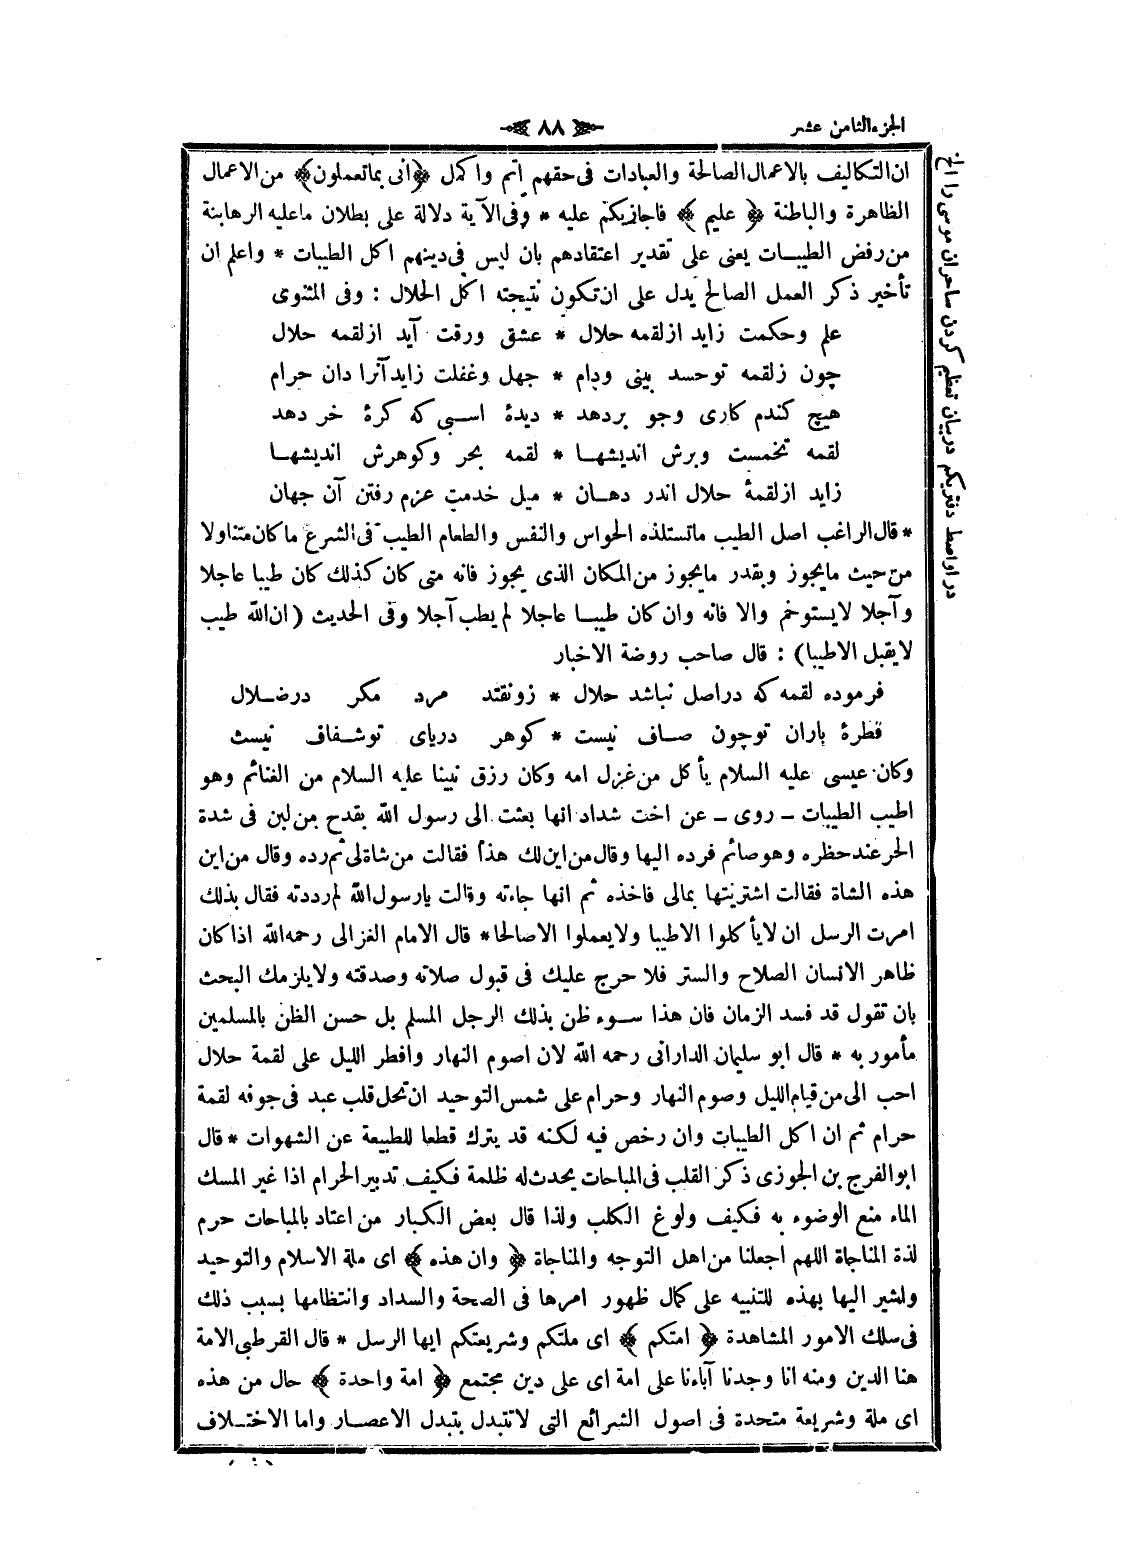 الجزء الثامن عشر
﴿ ٨٨ ﴾
ان التكاليف بالاعمال الصالحة والعبادات فى حقهم اتم واكمل ﴿ انى بما تعملون ﴾ من الاعمال
الظاهرة والباطنة ﴿ عليم ﴾ فاجازيكم عليه * وفى الآية دلالة على بطلان ماعليه الرهابنة
من رفض الطيبات يعنى على تقدير اعتقادهم بان ليس فى دينهم اكل الطيبات * واعلم ان
تأخير ذكر العمل الصالح يدل على ان تكون نتيجته اكل الحلال : وفى المثنوى
علم وحكمت زايد ازلقمه حلال * عشق ورقت آيد ازلقمه حلال
چون زلقمه توحسد بينى ودام * جهل وغفلت زايد آنرا دان حرام
هيچ كندم كارى وجو بردهد * ديدۀ اسبى كه كرۀ خر دهد
لقمه تخمست وبرش انديشها * لقمه بحر وكوهرش انديشها
زايد ازلقمۀ حلال اندر دهان * ميل خدمت عزم رفتن آن جهان
* قال الراغب اصل الطيب ماتستلذه الحواس والنفس والطعام الطيب فى الشرع ما كان متناولا
من حيث مايجوز وبقدر مايجوز من المكان الذى يجوز فانه متى كان كذلك كان طيبا عاجلا
وآجلا لايستوخم والا فانه وان كان طيبا عاجلا لم يطب آجلا وفى الحديث ( ان الله طيب
لايقبل الاطيبا ) : قال صاحب روضة الاخبار
فرموده لقمه كه دراصل نباشد حلال * زونفتد مرد مكر درضلال
قطرۀ باران توچون صاف نيست * كوهر درياى توشفاف نيست
وكان عيسى عليه السلام يأكل من غزل امه وكان رزق نبينا عليه السلام من الغنائم وهو
اطيب الطيبات – روى – عن اخت شداد انها بعثت الى رسول الله بقدح من لبن فى شدة
الحر عندحظره وهوصائم فرده اليها وقال من اين لك هذا فقالت من شاة لى ثم رده وقال من اين
هذه الشاة فقالت اشتريتها بمالى فاخذه ثم انها جاءته وقالت يارسول الله لم رددته فقال بذلك
امرت الرسل ان لايأكلوا الاطيبا ولايعملوا الاصالحا * قال الامام الغزالى رحمه الله اذا كان
ظاهر الانسان الصلاح والستر فلا حرج عليك فى قبول صلاته وصدقته ولايلزمك البحث
بان تقول قد فسد الزمان فان هذا سوء ظن بذلك الرجل المسلم بل حسن الظن بالمسلمين
مأمور به * قال ابو سليمان الدارانى رحمه الله لان اصوم النهار وافطر الليل على لقمة حلال
احب الى من قيام الليل وصوم النهار وحرام على شمس التوحيد ان تحل قلب عبد فى جوفه لقمة
حرام ثم ان اكل الطيبات وان رخص فيه لكنه قد يترك قطعا للطبيعة عن الشهوات * قال
ابوالفرج بن الجوزى ذكر القلب فى المباحات يحدث له ظلمة فكيف تدبير الحرام اذا غير المسك
الماء منع الوضوء به فكيف ولوغ الكلب ولذا قال بعض الكبار من اعتاد بالمباحات حرم
لذة المناجاة اللهم اجعلنا من اهل التوجه والمناجاة ﴿ وان هذه ﴾ اى ملة الاسلام والتوحيد
واشير اليها بهذه للتنبيه على كمال ظهور امرها فى الصحة والسداد وانتظامها بسبب ذلك
فى سلك الامور المشاهدة ﴿ امتكم ﴾ اى ملتكم وشريعتكم ايها الرسل * قال القرطبى الامة
هنا الدين ومنه انا وجدنا آباءنا على امة اى على دين مجتمع ﴿ امة واحدة ﴾ حال من هذه
اى ملة وشريعة متحدة فى اصول الشرائع التى لاتتبدل بتبدل الاعصار واما الاختلاف
در اواسط دفتر يكم دربيان تعظيم كردن ساحران موسى را الخ